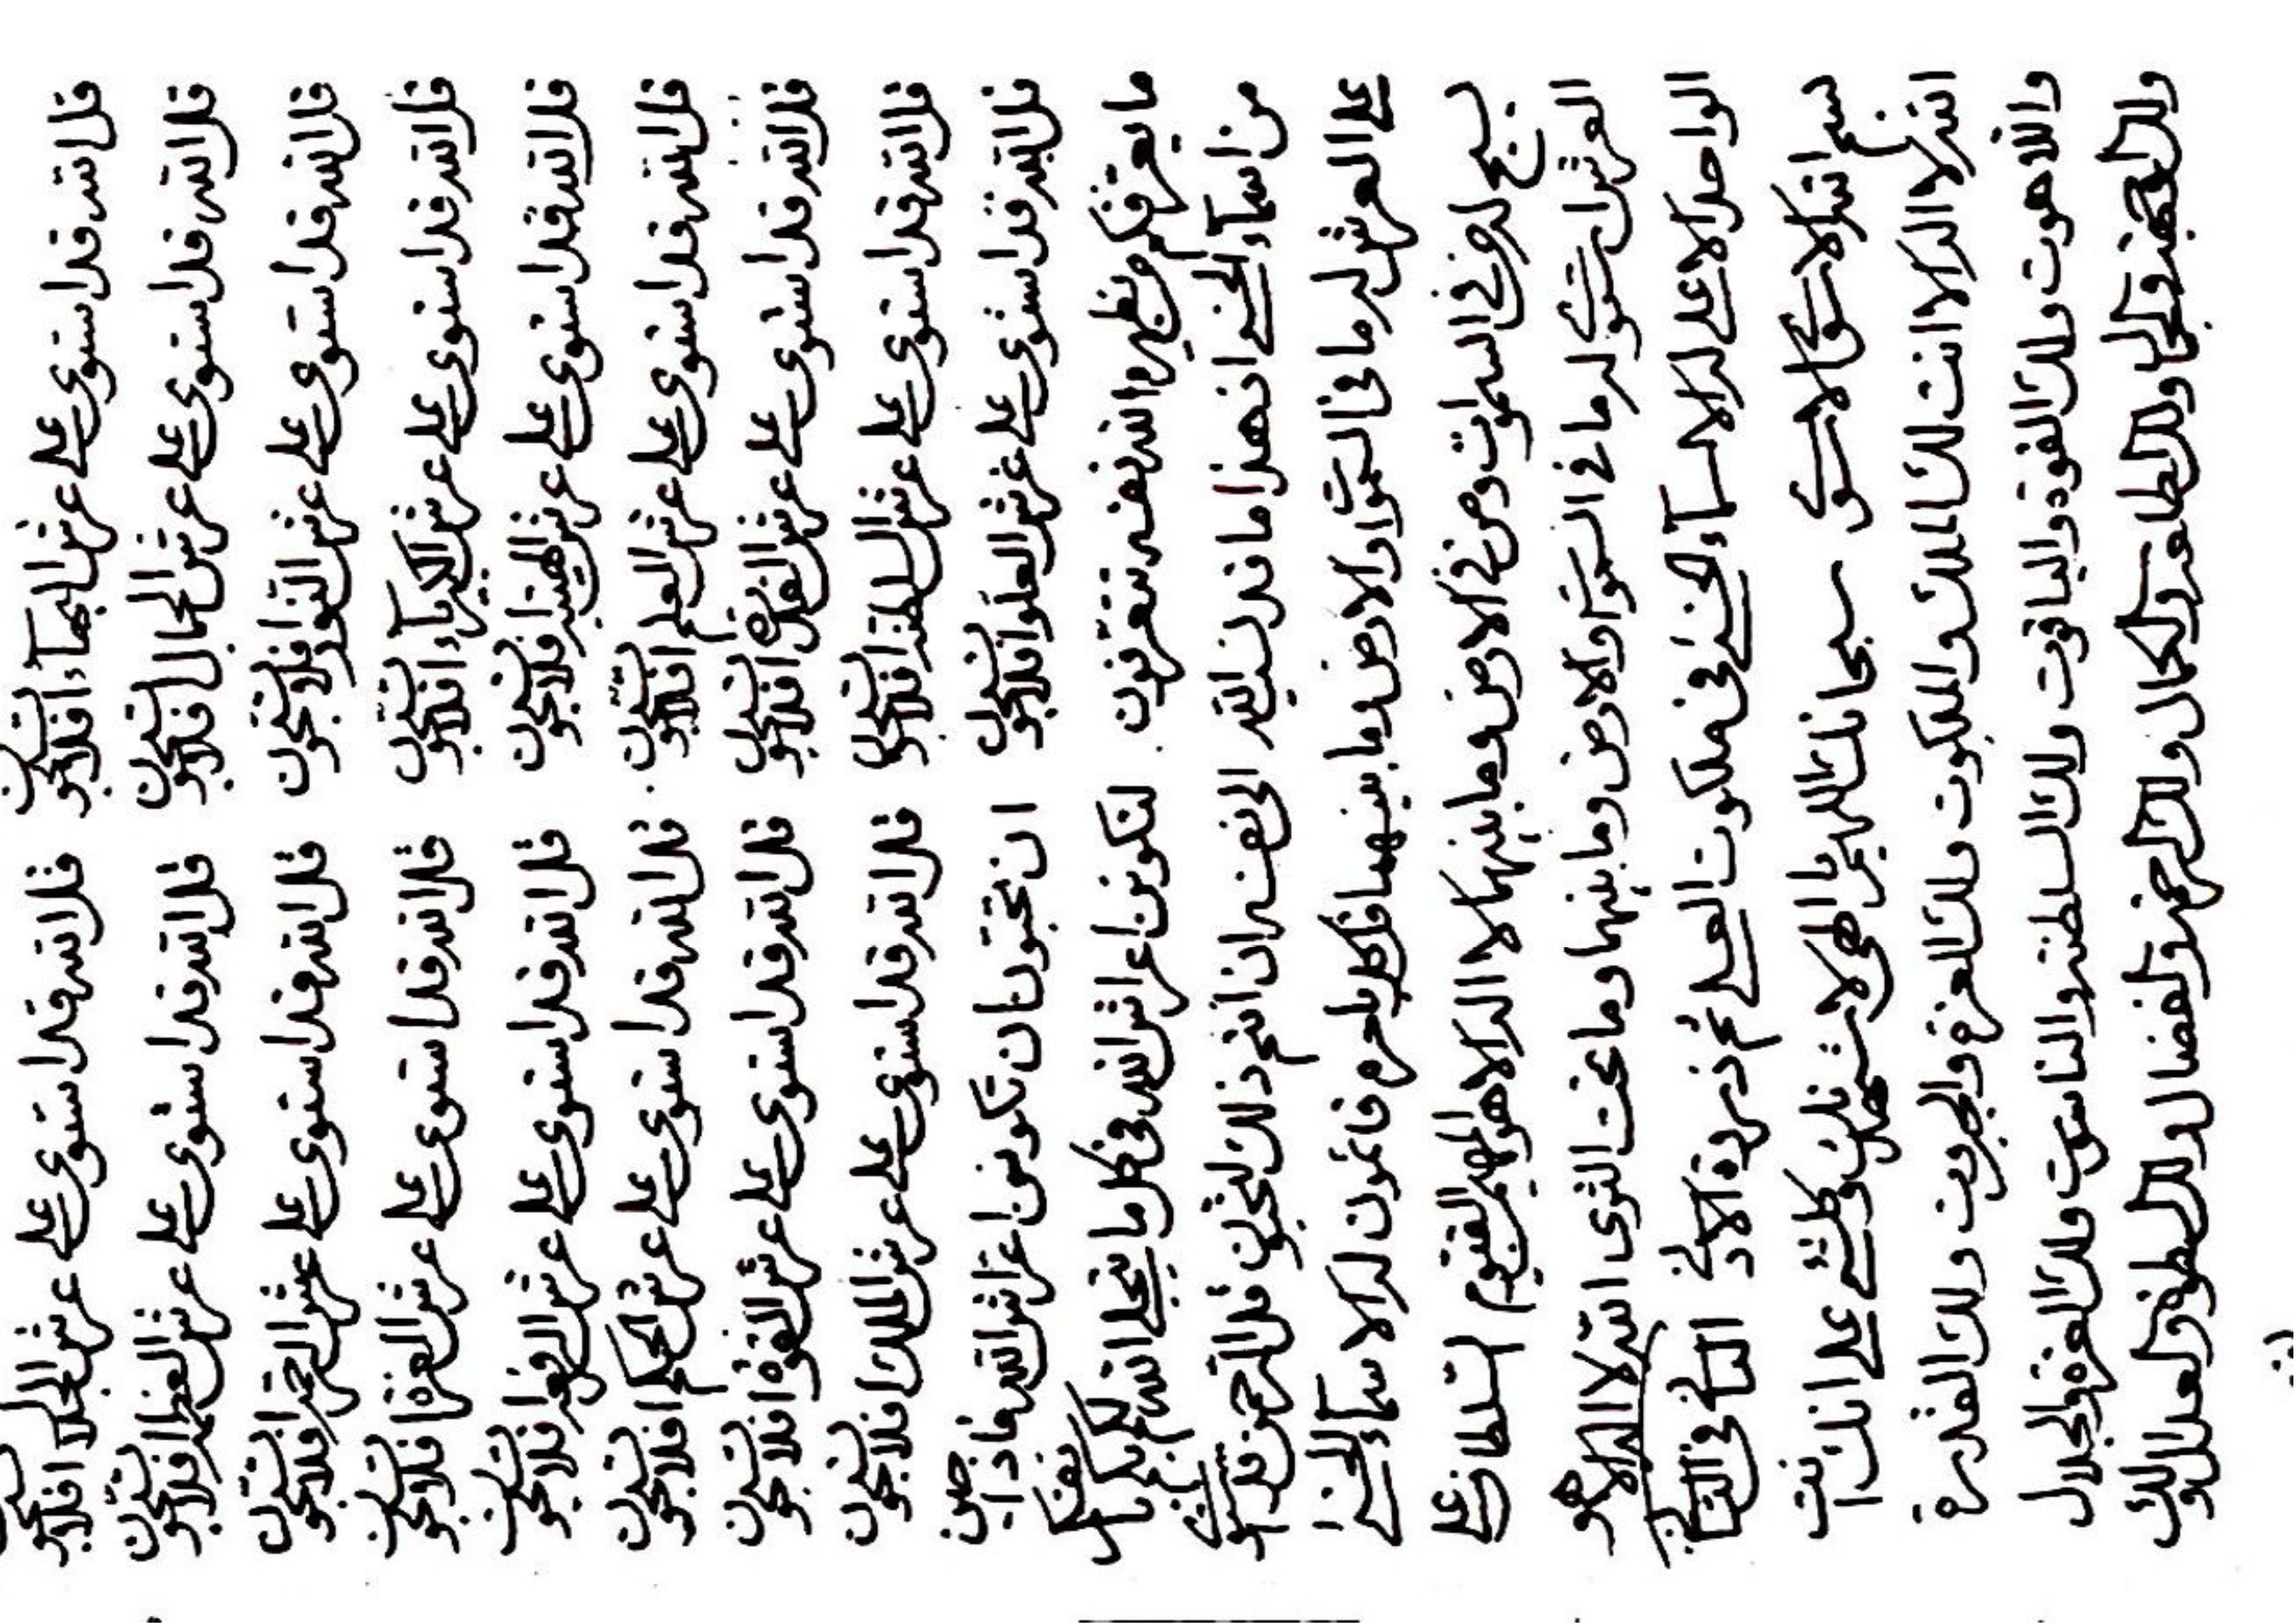 قل الله قد استوى على عرش البهاء افلا قل الله قد استوى على عرش الجلال افلا
قل الله قد استوى على عرش الجمال افلا قل الله قد استوى على عرش العظمة افلا
قل الله قد استوى على عرش النور افلا قل الله قد استوى على عرش الرحمة افلا
قل الله قد استوى على عرش الكبرياء افلا قل الله قد استوى على عرش العزة افلا
قل الله قد استوى على عرش افلا قل الله قد استوى على عرش افلا
قل الله قد استوى على عرش العلم افلا قل الله قد استوى على عرش الحكم افلا
قل الله قد استوى على عرش الفضل افلا قل الله قد استوى على عرش القوة افلا
قل الله قد استوى على عرش السلطنة افلا قل الله قد استوى على عرش الملك افلا
قل الله قد استوى على عرش العلو افلا ان تحبون ان تكونن اعراش الله فاذا حين
ما يعرفكم من يظهره الله نفسه تتعرفون لتكونن اعراش الله في كل ما يتجلى الله لكم بكم
من اسماء الحسنى ان هذا ما الله الى نفسه ان انتم ذلك تحبون قل الرحمن قد استوى
على العرش له ما في السموات والارض وما بينهما قل كل بامره قائمون له الاسماء الحسنى
يسبح له من في السموات ومن في الارض وما بينهما لا اله الا هو المهيمن القيوم على
العرش استوى له ما في السموات والارض وما بينهما وما تحت الثرى الله لا اله الا هو
الواحد الاعلى له الاسماء الحسنى في ملكوت العلى ثم ذروة الادنى الثاني في الثاني
بسم الله الاستوى الاستوى سبحانك اللهم يا الهي لاشهدنك وكل شيء على انك انت
الله لا اله الا انت لك الملك والملكوت ولك العزة والجبروت ولك القدرة
واللاهوت ولك القوة والياقوت ولك السلطنة والناسوت ولك العزة والجلال
ولك الوجهة والجمال ولك الطلعة والكمال ولك الرحمة والفضال ولك السطوة والعدال ولك